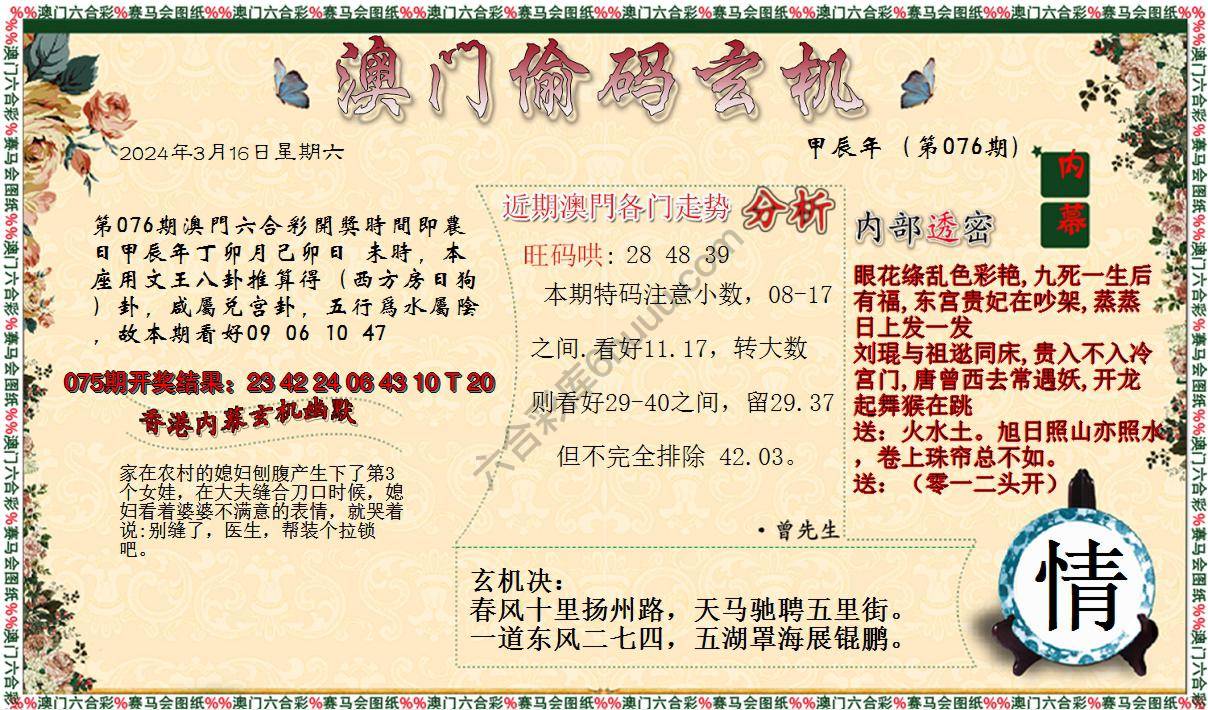 %%澳门六合彩%赛马会图纸%%澳门六合彩%赛马会图纸%%澳门六合彩%赛马会图纸%%澳门六合彩%赛马会图纸%%澳门六合彩%赛马会图纸%%澳门六合彩%赛马会图纸
澳门偷码玄机
2024年3月16日星期六
甲辰年（第076期）
内
幕
第076期澳門六合彩開獎時間即農
日甲辰年丁卯月己卯日 未時，本
座用文王八卦推算得（西方房日狗
）卦，咸屬兑宫卦，五行爲水屬陰
，故本期看好09 06 10 47
075期开奖结果：23 42 24 06 43 10 T 20
香港内幕玄机幽默
家在农村的媳妇刨腹产生下了第3
个女娃，在大夫缝合刀口时候，媳
妇看着婆婆不满意的表情，就哭着
说:别缝了，医生，帮装个拉锁
吧。
近期澳門各门走势 分析
旺码哄: 28 48 39
本期特码注意小数，08-17
之间.看好11.17，转大数
则看好29-40之间，留29.37
但不完全排除 42.03。
·曾先生
内部透密
眼花缘乱色彩艳,九死一生后
有福,东宫贵妃在吵架,蒸蒸
日上发一发
刘琨与祖逖同床,贵入不入冷
宫门,唐曾西去常遇妖,开龙
起舞猴在跳
送：火水土。旭日照山亦照水
，卷上珠帘总不如。
送：（零一二头开）
玄机决：
春风十里扬州路，天马驰聘五里街。
一道东风二七四，五湖罩海展锟鹏。
情
%%澳门六合彩%赛马会图纸%%澳门六合彩%赛马会图纸%%澳门六合彩%赛马会图纸%%澳门六合彩%赛马会图纸%%澳门六合彩%赛马会图纸%%澳门六合彩%赛马会图纸